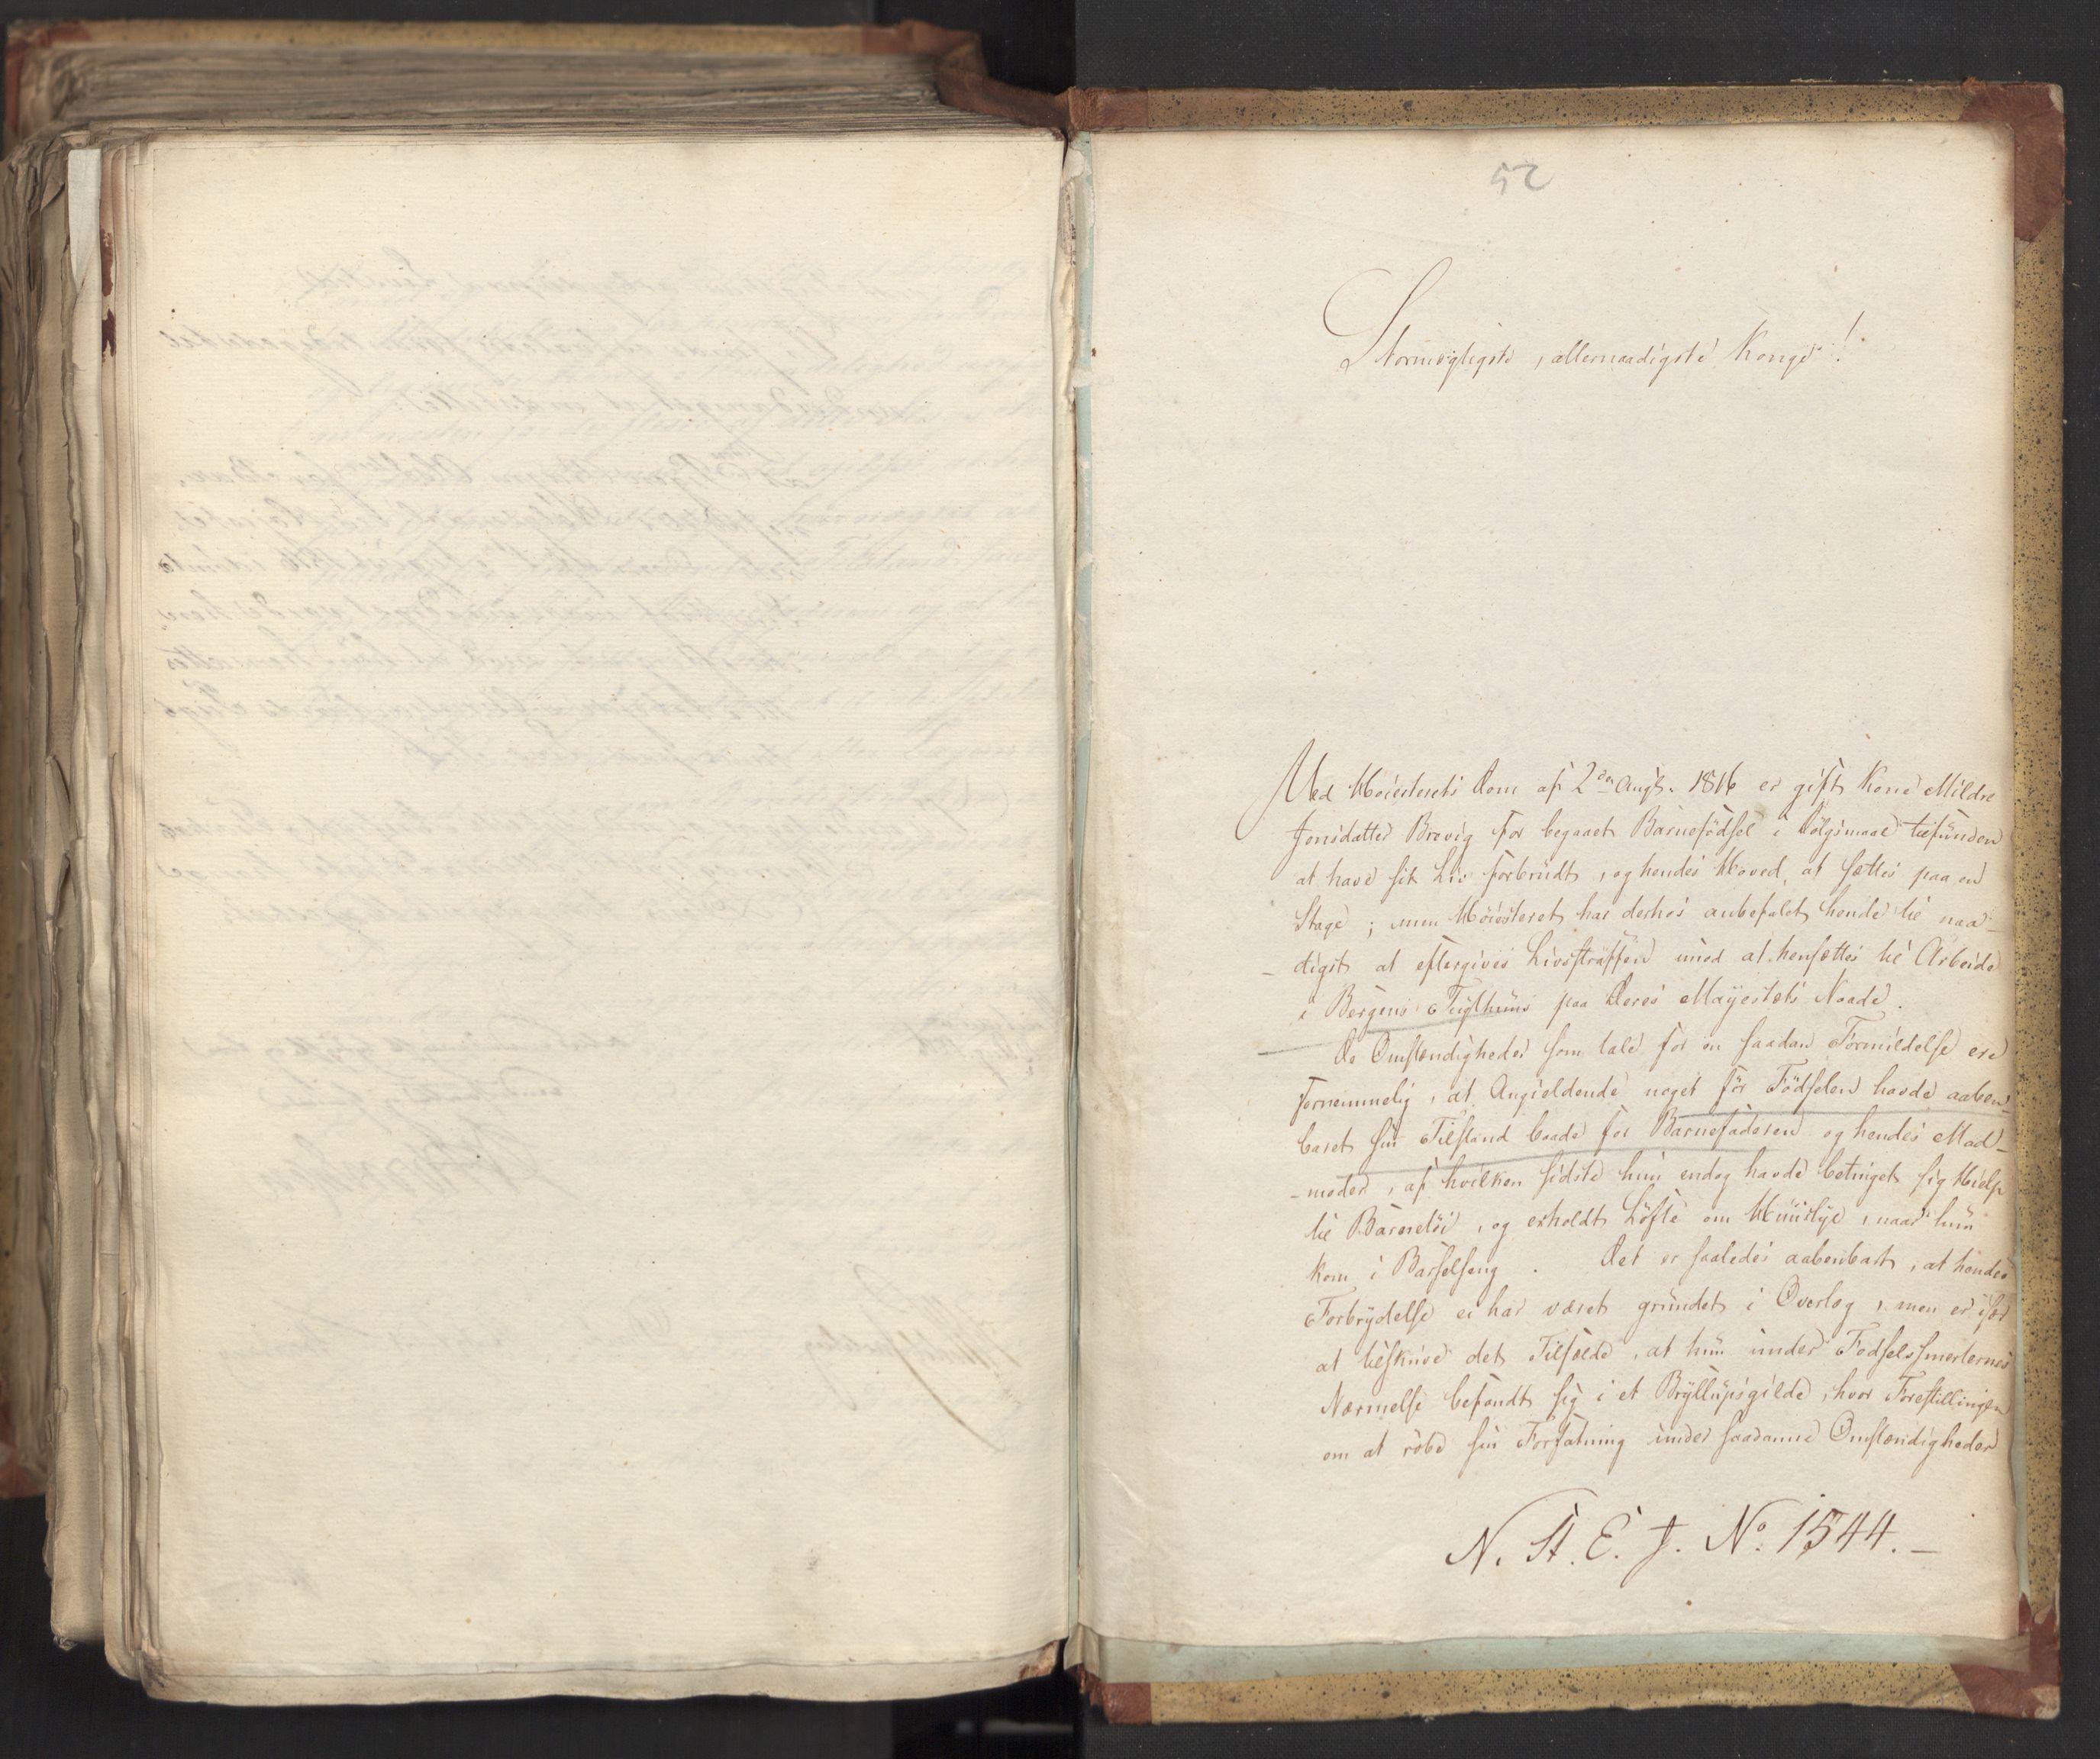 52
Stormægtigste, allernaadigste Konge!
Ved Höiesterets Dom af 2den Augt. 1816 er gift Kone Mildri
Jonsdatter Brevig for begaaet Barnefödsel i Dölgsmaal tilfunden
at have sit Liv forbrudt, og hendes Hoved, at sættes paa en
Stage; men Höiesteret har derhos anbefalet hende til naa-
-digst at eftergives Livsstraffen imod at hensættes til Arbeide
i Bergens Tugthuus paa Deres Majestæts Naade.
De Omstændigheder som tale for en saadan Formildelse ere
fornemmelig, at Angieldende noget för Födselen havde aaben-
baret sin Tilstand baade for Barnefaderen og hendes Mad-
-moder, af hvilken sidste hun endog havde betinget sig Hielp
til Barnetöi, og erholdt Löfte om Huuslye, naar hun
kom i Barselseng. Det er saaledes aabenbart, at hendes
Forbrydelse ei har været grundet i Overlæg, men er især
at tilskrive det Tilfælde, at hun under Fødselssmerternes
Nærmelse befandt sig i et Bryllupsgilde, hvor Forestillingen
om at röbe sin Forfatning under saadanne Omstændigheder
N. St. E. J. No. 1544.-